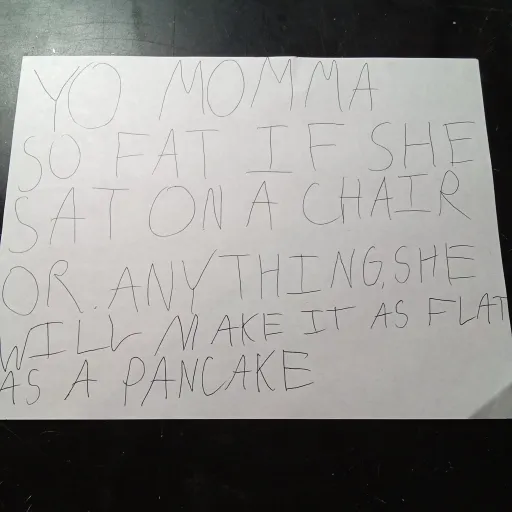 YO MOMMA
SO FAT IF SHE
SAT ON A CHAIR
OR ANYTHING, SHE
WILL MAKE IT AS FLAT
AS A PANCAKE